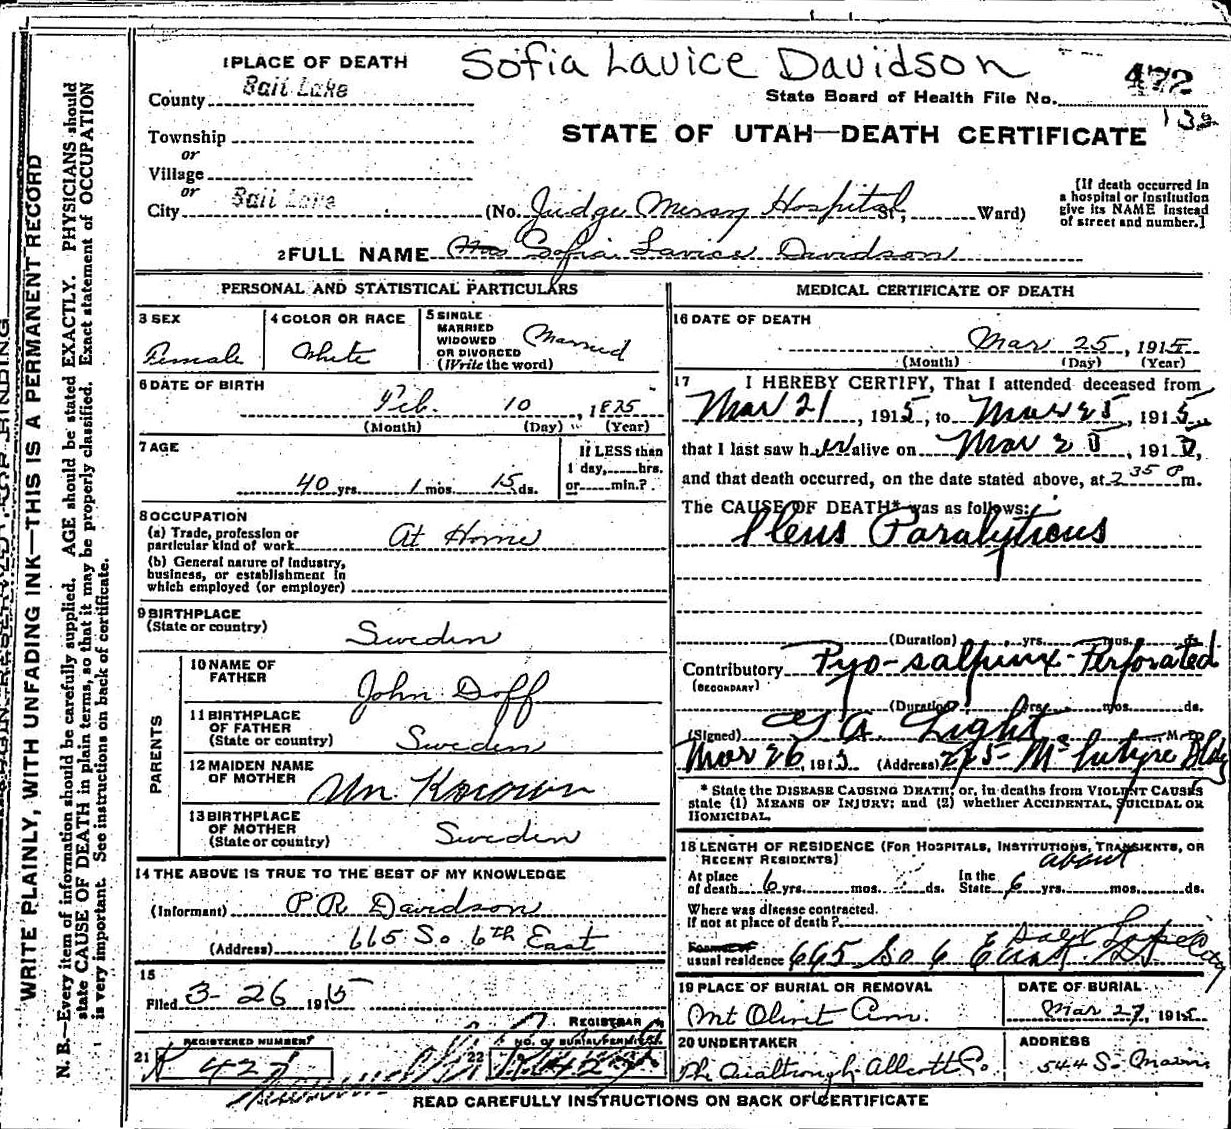 Sofia Lavice Davidson
472
1 PLACE OF DEATH
County Salt Lake
State Board of Health File No.
Township
or
STATE OF UTAH—DEATH CERTIFICATE
Village
or
City Salt Lake (No. Judge Mercy Hospital St., Ward)
[If death occurred in a hospital or institution give its NAME instead of street and number.]
2 FULL NAME Mrs Sofia Lavice Davidson
PERSONAL AND STATISTICAL PARTICULARS
3 SEX
Female
4 COLOR OR RACE
White
5 SINGLE
MARRIED
WIDOWED
OR DIVORCED
(Write the word)
Married
6 DATE OF BIRTH
Feb. 10, 1875
(Month) (Day) (Year)
7 AGE
40 yrs. 1 mos. 15 ds.
If LESS than
1 day, hrs.
or min.?
8 OCCUPATION
(a) Trade, profession or
particular kind of work At Home
(b) General nature of industry,
business, or establishment in
which employed (or employer)
9 BIRTHPLACE
(State or country)
Sweden
PARENTS
10 NAME OF
FATHER
John Doff
11 BIRTHPLACE
OF FATHER
(State or country)
Sweden
12 MAIDEN NAME
OF MOTHER
Un Known
13 BIRTHPLACE
OF MOTHER
(State or country)
Sweden
14 THE ABOVE IS TRUE TO THE BEST OF MY KNOWLEDGE
(Informant) P R Davidson
(Address) 665 So 6th East
15
Filed 3-26 1915
REGISTRAR
REGISTERED NUMBER
21
NO. OF BURIAL PERMIT
22
MEDICAL CERTIFICATE OF DEATH
16 DATE OF DEATH
Mar 25, 1915
(Month) (Day) (Year)
17 I HEREBY CERTIFY, That I attended deceased from
Mar 21, 1915, to Mar 25, 1915,
that I last saw her alive on Mar 25, 1915,
and that death occurred, on the date stated above, at 2 35 P m.
The CAUSE OF DEATH* was as follows:
Ileus Paralyticus
(Duration) yrs. mos. ds.
Contributory Pyo-salpinx-Perforated
(SECONDARY)
(Duration) yrs. mos. ds.
(Signed) A. Light M. D.
Mar 26, 1915 (Address) 225 McIntyre Bldg
* State the DISEASE CAUSING DEATH; or, in deaths from VIOLENT CAUSES
state (1) MEANS OF INJURY; and (2) whether ACCIDENTAL, SUICIDAL OR
HOMICIDAL.
18 LENGTH OF RESIDENCE (FOR HOSPITALS, INSTITUTIONS, TRANSIENTS, OR
RECENT RESIDENTS) about
At place of death 6 yrs. mos. ds. In the State 6 yrs. mos. ds.
Where was disease contracted.
If not at place of death?
Former or
usual residence 665 So 6 East St Salt Lake City
19 PLACE OF BURIAL OR REMOVAL
Mt Olivet Cem.
DATE OF BURIAL
Mar 27, 1915
20 UNDERTAKER
ADDRESS
544 S. Main
READ CAREFULLY INSTRUCTIONS ON BACK OF CERTIFICATE
WRITE PLAINLY, WITH UNFADING INK—THIS IS A PERMANENT RECORD
N. B.—Every item of information should be carefully supplied. AGE should be stated EXACTLY. PHYSICIANS should
state CAUSE OF DEATH in plain terms, so that it may be properly classified. Exact statement of OCCUPATION
is very important. See instructions on back of certificate.